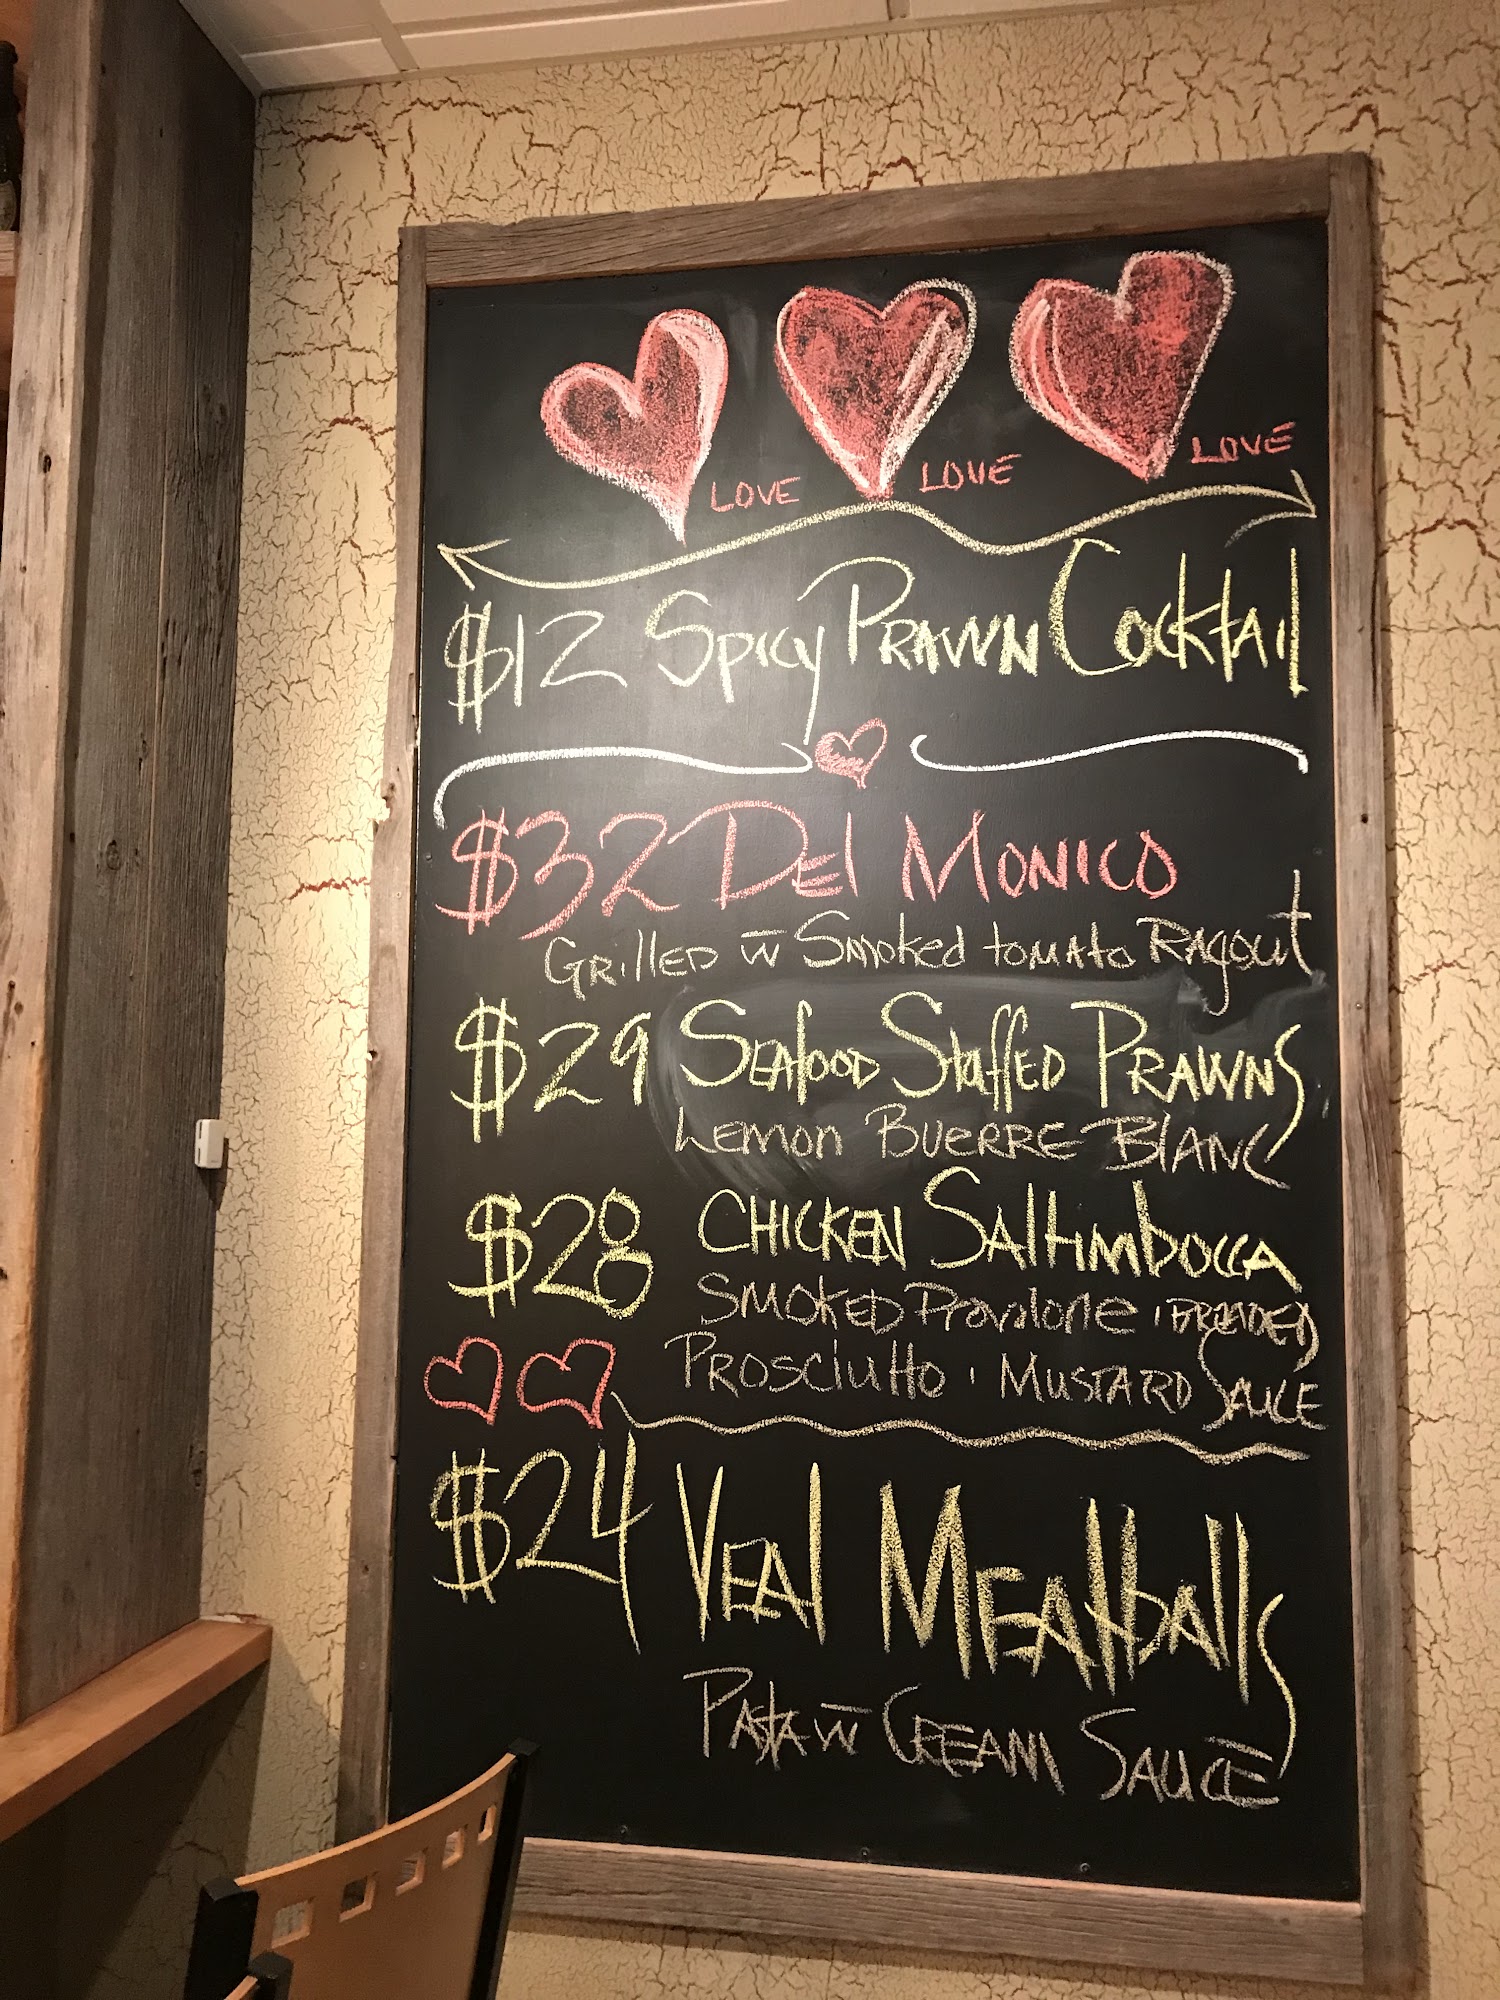 LOVE LOVE LOVE
$12 Spicy PRAWN Cocktail
$32 Del MONICO
GRillED w̄ Smoked tomato Ragout
$29 Seafood Stuffed PRAWNS
Lemon BUERRE BlANC
$28 CHICKEN SAltimbocca
SMOKED Provalone, BREADED
PROSCiutto, MUSTARD SAUCE
$24 VEAl MEAtballs
PAStA w̄ CREAM SAUCE